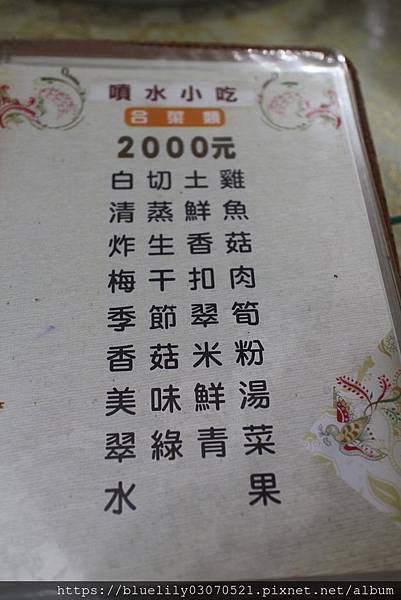 噴水小吃
合菜類
2000元
白切土雞
清蒸鮮魚
炸生香菇
梅干扣肉
季節翠筍
香菇米粉
美味鮮湯
翠綠青菜
水果
https://bluelily03070521.pixnet.net/album